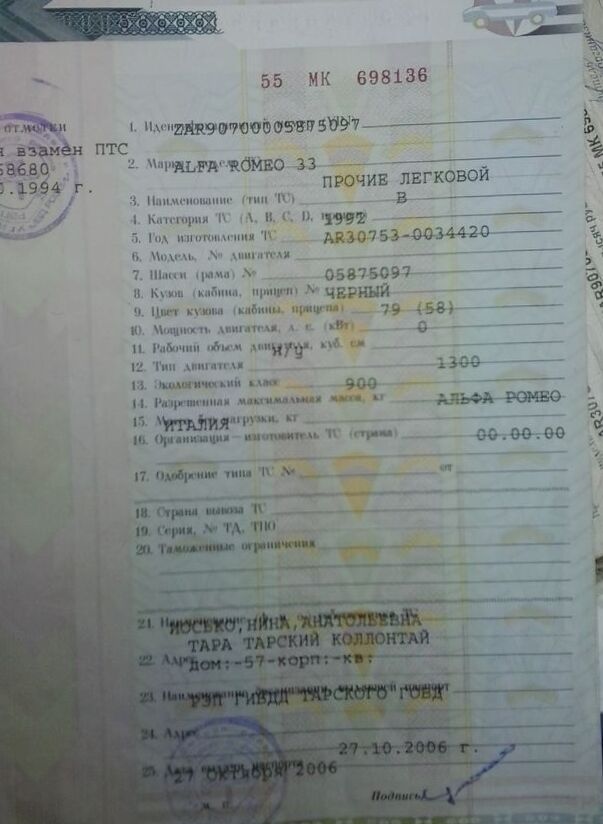 55 МК 698136
отметки
взамен ПТС
58680
0.1994 г.
1. Идентификационный номер (VIN) ZAR90700005875097
2. Марка, модель ТС ALFA ROMEO 33
ПРОЧИЕ ЛЕГКОВОЙ
3. Наименование (тип ТС)
4. Категория ТС (A, B, C, D, прицеп) B
5. Год изготовления ТС 1992
6. Модель, № двигателя AR30753-0034420
7. Шасси (рама) №
8. Кузов (кабина, прицеп) № 05875097
9. Цвет кузова (кабины, прицепа) ЧЕРНЫЙ
10. Мощность двигателя, л. с. (кВт) 79 (58)
11. Рабочий объем двигателя, куб. см 0
12. Тип двигателя Н/У
13. Экологический класс
14. Разрешенная максимальная масса, кг 1300
15. Масса без нагрузки, кг 900
16. Организация – изготовитель ТС (страна) АЛЬФА РОМЕО
ИТАЛИЯ
17. Одобрение типа ТС № от 00.00.00
18. Страна вывоза ТС
19. Серия, № ТД, ТПО
20. Таможенные ограничения
21. НИНА, АНАТОЛЬЕВНА
22. Адрес ТАРА ТАРСКИЙ КОЛЛОНТАЙ
дом:-57-корп:-кв:
23. Наименование организации, выдавшей паспорт
РЭП ГИБДД ТАРСКОГО ГОВД
24. Адрес
27.10.2006 г.
25. Дата выдачи паспорта
27 ОКТЯБРЯ 2006
М. П.
Подпись